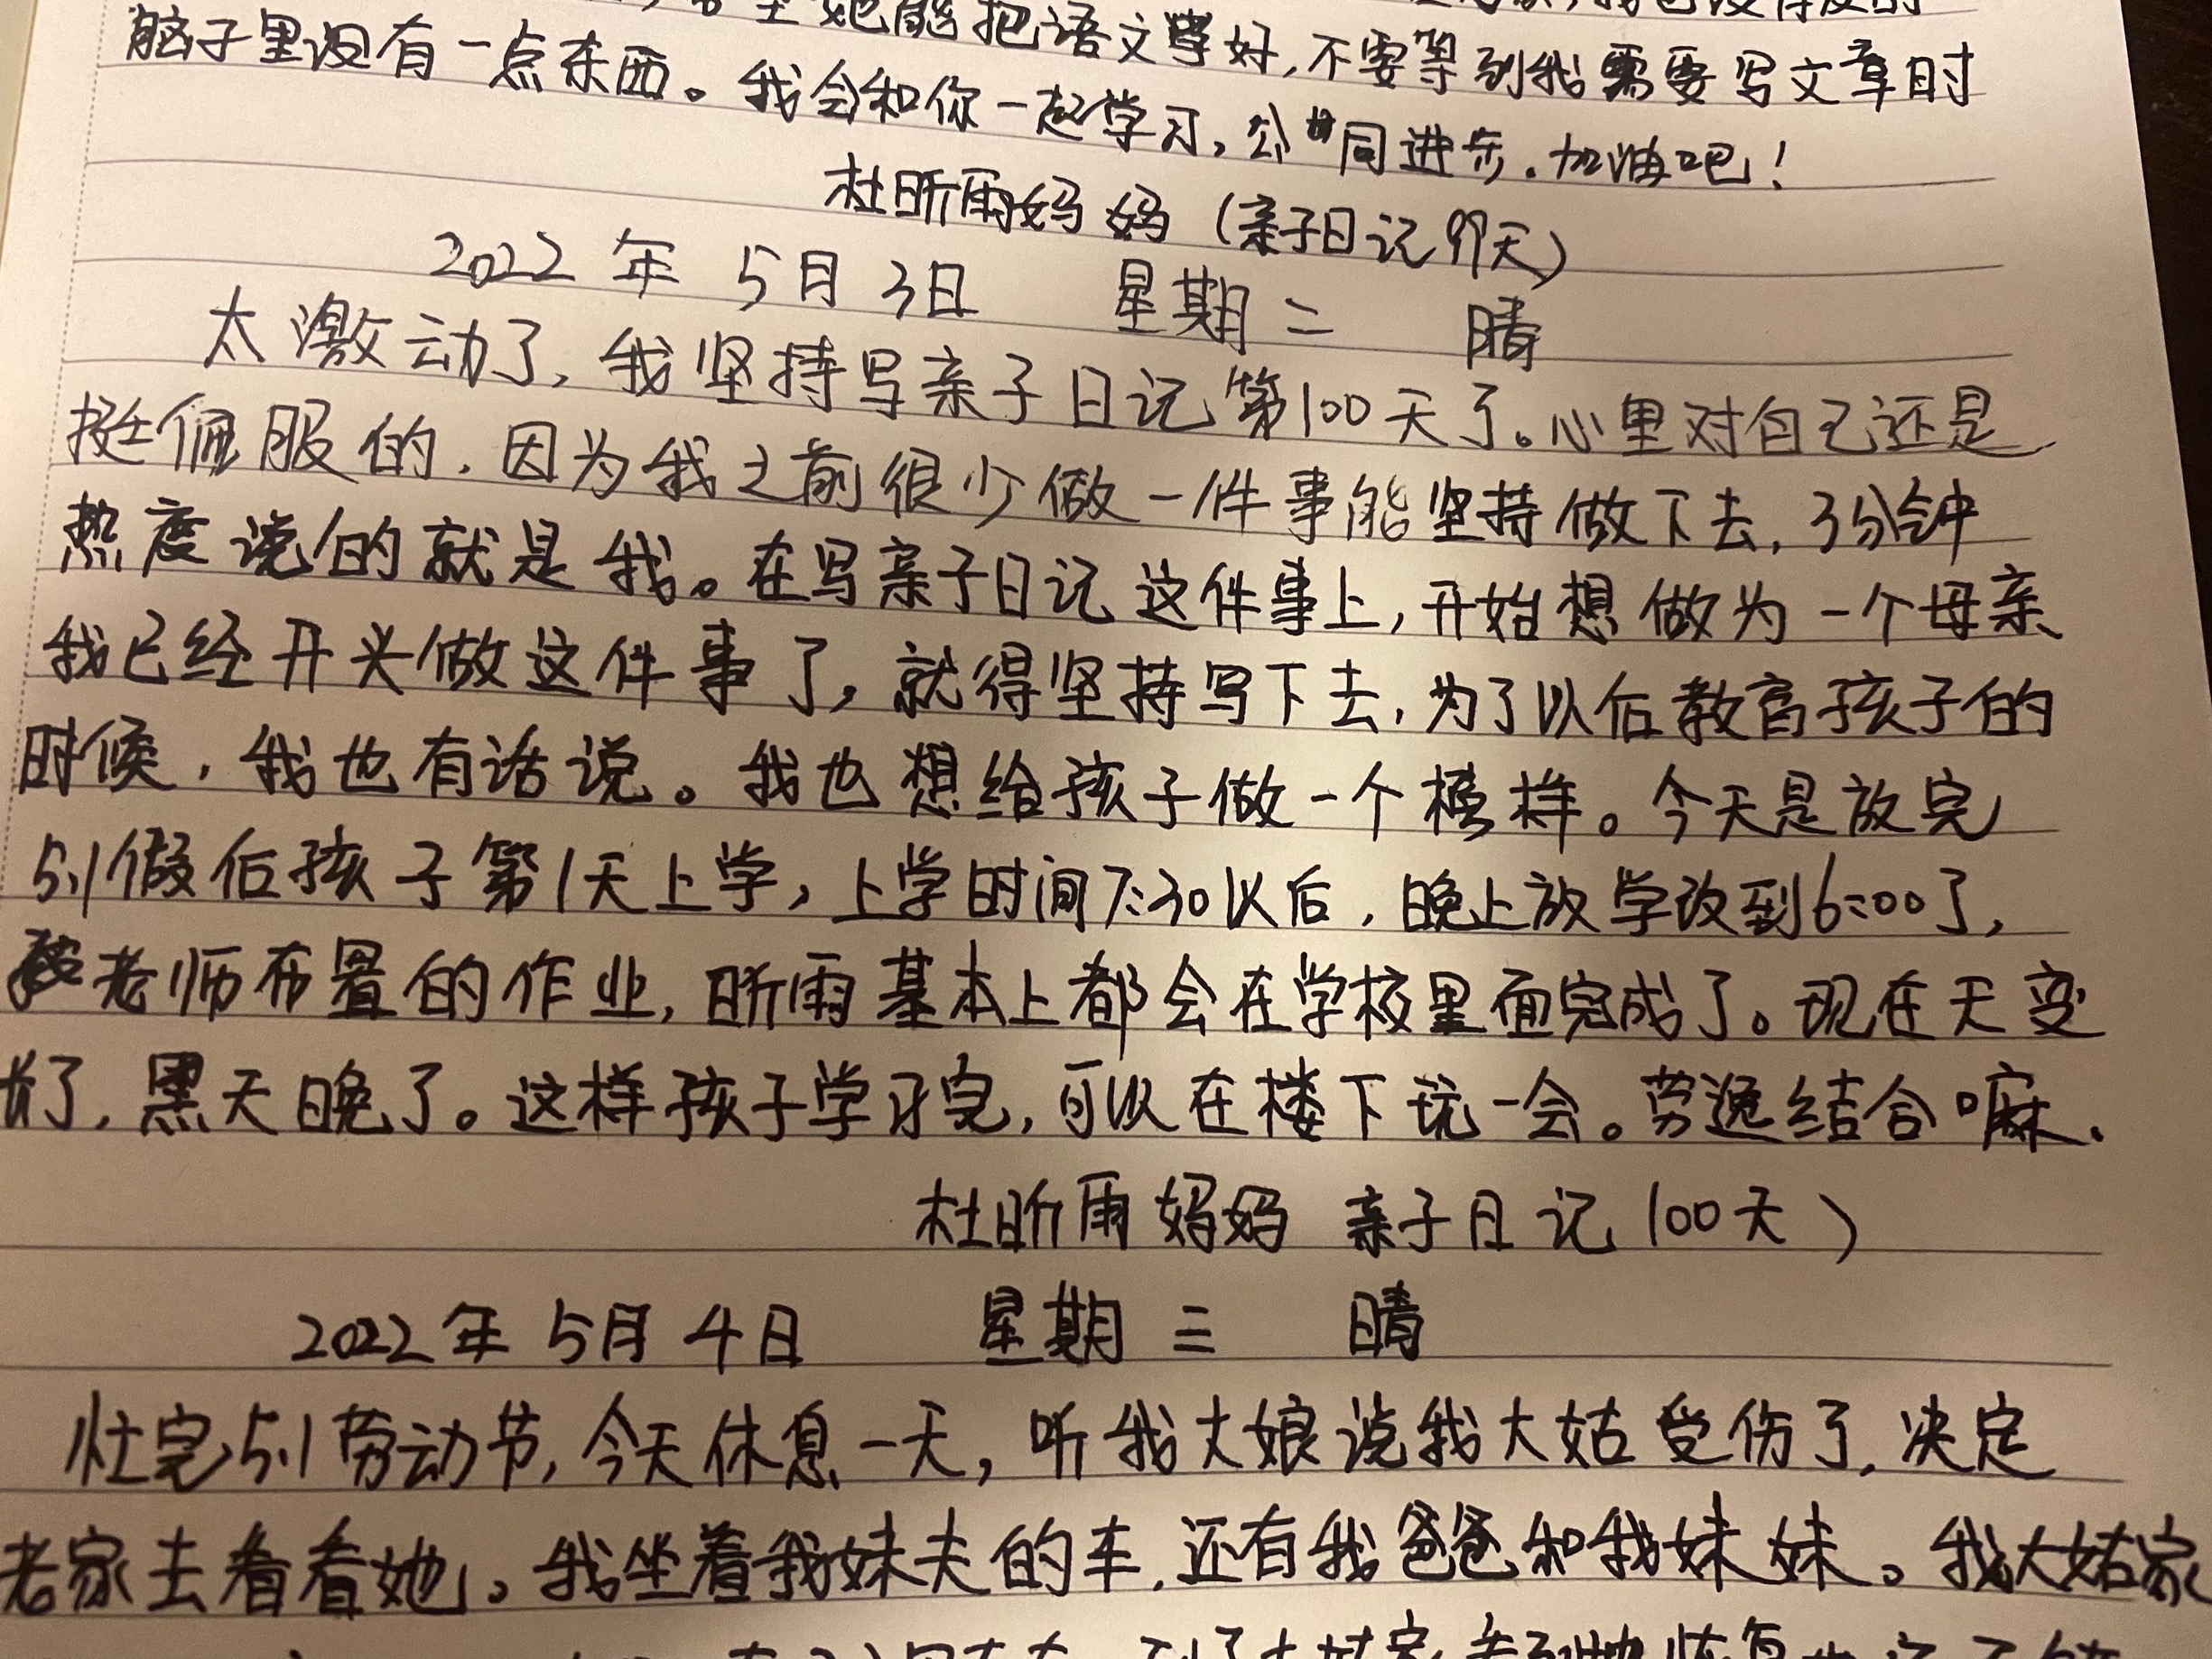 她能把语文学好,不要等到我需要写文章时
脑子里没有一点东西。我会和你一起学习,共同进步.加油吧!
杜昕雨妈妈(亲子日记99天)
2022年 5月3日 星期二 晴
太激动了,我坚持写亲子日记第100天了。心里对自己还是
挺佩服的,因为我之前很少做一件事能坚持做下去,3分钟
热度说的就是我。在写亲子日记这件事上,开始想做为一个母亲
我已经开头做这件事了,就得坚持写下去,为了以后教育孩子的
时候,我也有话说。我也想给孩子做一个榜样。今天是放完
5.1假后孩子第1天上学,上学时间7:30以后,晚上放学改到6:00了,
老师布置的作业,昕雨基本上都会在学校里面完成了。现在天变
了,黑天晚了。这样孩子学习完,可以在楼下玩一会。劳逸结合嘛.
杜昕雨妈妈 亲子日记100天)
2022年5月4日 星期三 晴
忙完5.1劳动节,今天休息一天,听我大娘说我大姑受伤了,决定
老家去看看她。我坐着我妹夫的车,还有我爸爸和我妹妹。我大姑家